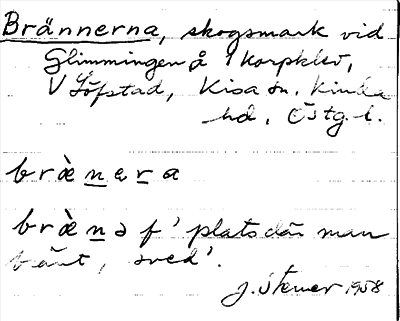 Brännerna, skogsmark vid
Glimmingen å Korpklev,
V Löfstad, Kisa sn. Kinda
hd, Östg. l.
bræ̀nera
bræ̀nə f' plats där man
bränt, sved'.
J. Stemer 1958